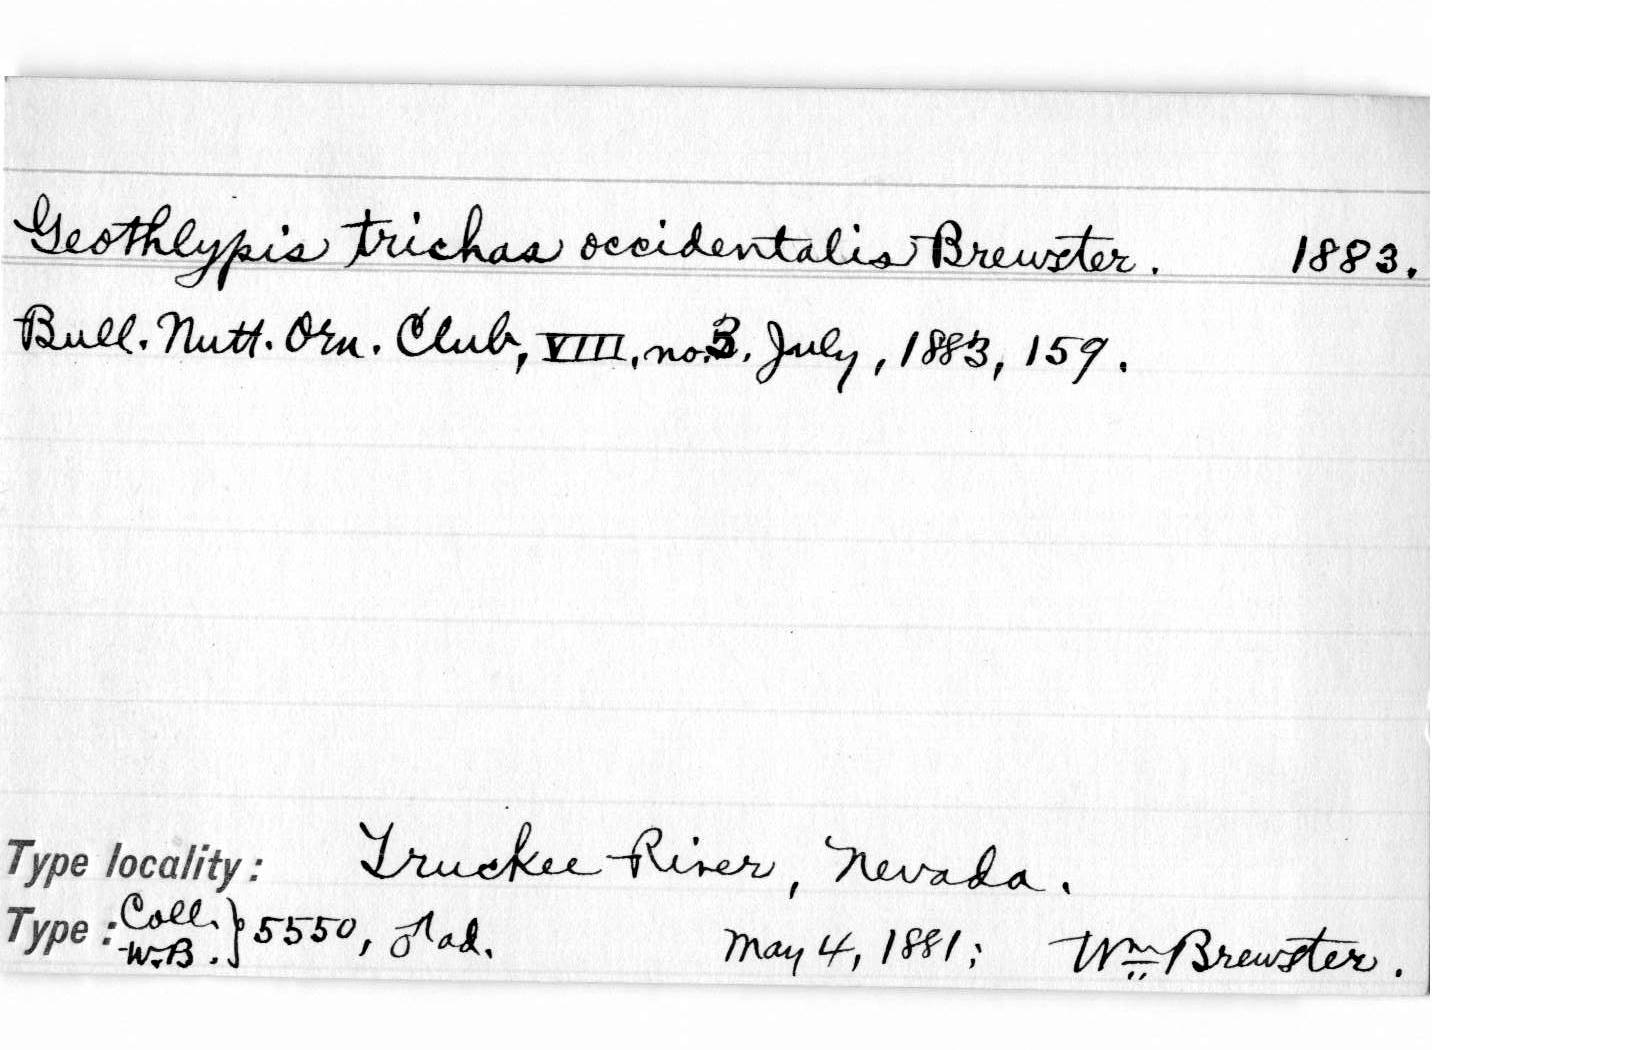 Geothlypis trichas occidentalis Brewster. 1883.
Bull. Nutt. Orn. Club, VIII, no. 3. July, 1883, 159.
Type locality: Truckee River, Nevada.
Type: Coll. W.B. } 5550, ♂ ad. May 4, 1881; Wm Brewster.